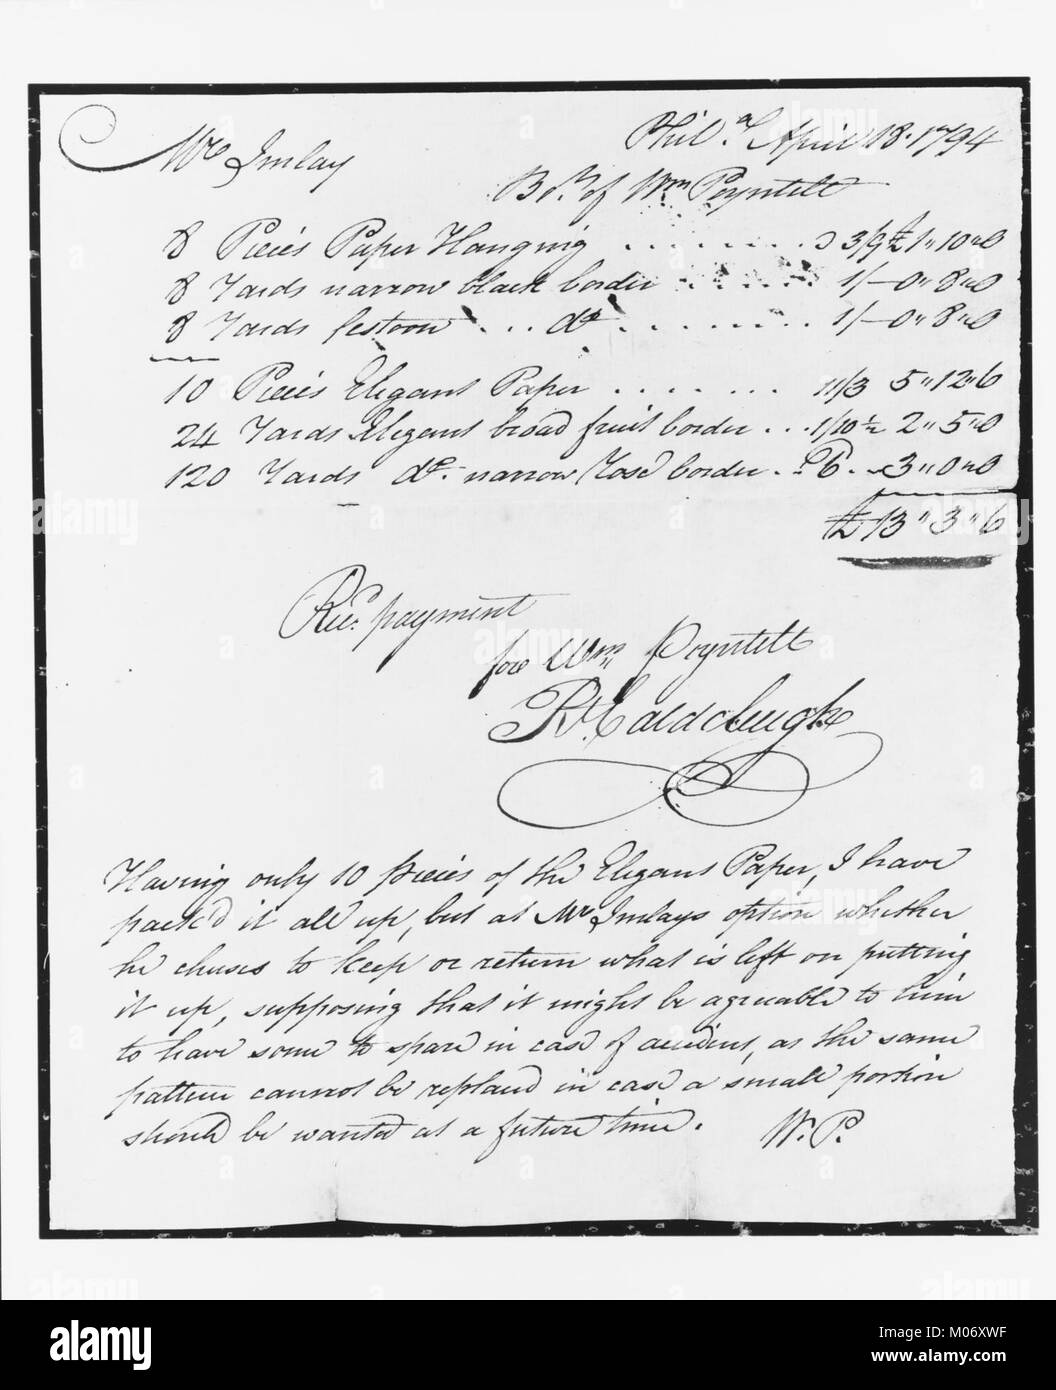 Philᵃ. April 18. 1794
Mr Imlay
Boᵗ. of Wm Poyntell
8 Pieces Paper Hanging ........ 3/9 £1"10"0
8 Yards narrow black border ...... 1/- 0"8"0
8 Yards festoon ... dº ........ 1/- 0"8"0
10 Pieces Elegant Paper ........ 11/3 5"12"6
24 Yards Elegant broad fruit border ... 1/10½ 2"5"0
120 Yards dº. narrow rose border . 6 . 3"0"0
£13"3"6
Recᵈ. payment
for Wm Poyntell
Rt. Caldcleugh
Having only 10 pieces of the Elegant Paper, I have
pack'd it all up, but at Mr Imlays option whether
he chuses to keep or return what is left on putting
it up, supposing that it might be agreeable to him
to have some to spare in case of accident, as the same
pattern cannot be replaced in case a small portion
should be wanted at a future time. W. P.
alamy
Image ID: M06XWF
www.alamy.com